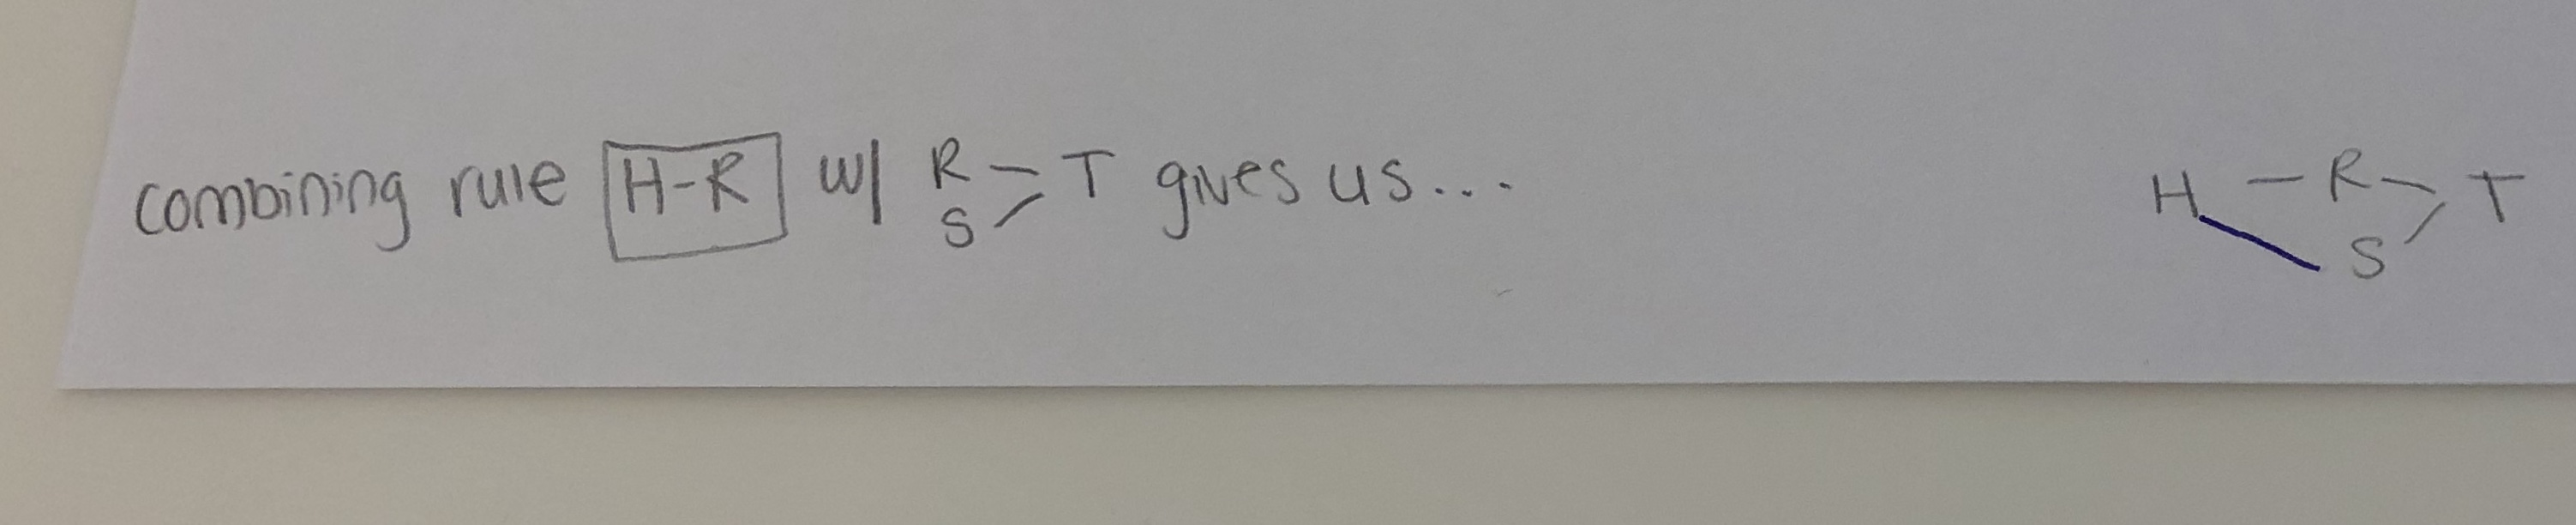 combining rule H-R w/ R > T gives us...
S
H - R > T
S